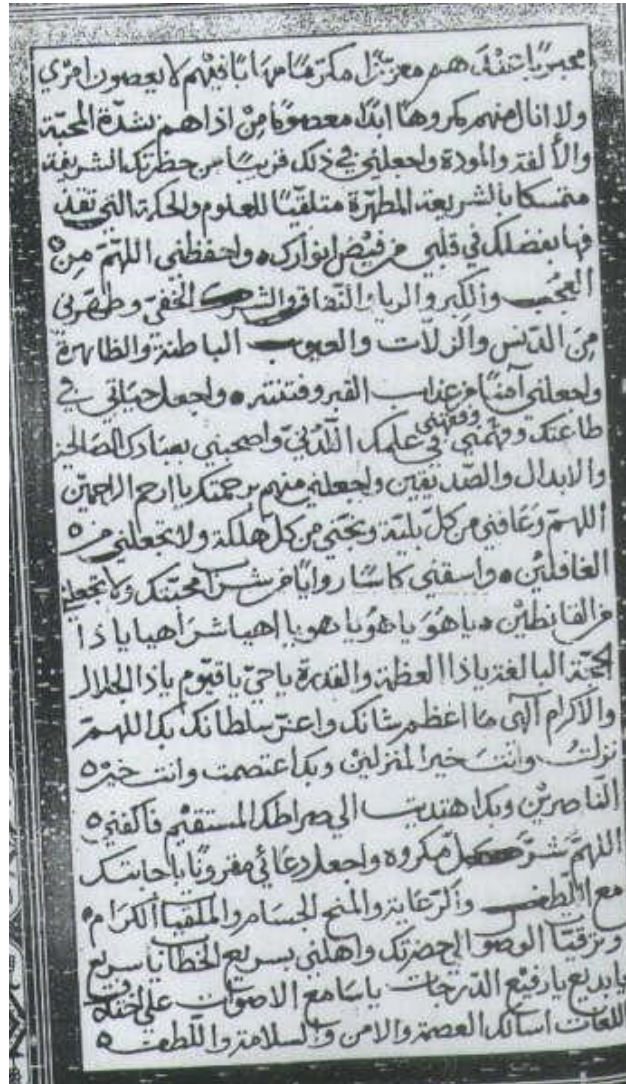 محبوبًا عندهم معززًا مكرمًا مهابًا فيهم لا يعصون امري
ولا انال منهم مكروهًا ابدًا معصومًا مِنْ اذاهم بشدّة المحبّة
والألفة والمودة واجعلني في ذلك قريبًا من حضرتك الشريفة
متمسكا بالشريعة المطهّرة متلقّيًا للعلوم والحكمة التي
فيها بفضلك في قلبي من فيْض انوارك ه واحفظني اللهمّ مِنْ ه
العجْب والكبر والرياء والنّفاق والشرك الخفيّ وطهّرني
مِنَ الدّنس والزلّات والعيوب الباطنة والظاهرة
واجعلني آمنًا من عذاب القبر وفتنته ه واجعل حياتي في
طاعتك وفهّمني وفقهني في علمك اللّدنيّ واصحبني بعبادك الصالحين
والابدال والصّديقين واجعلني منهم برحمتك يا ارحم الراحمين
اللهمّ وعَافني من كلّ بليّة ونجّني من كلّ هلكة ولا تجعلني من ه
الغافليْن ه واسقني كاسًا روايًا من شراب محبّتك ولا تجعلني
من القانطيْن ه يا هُوَ يا هُو يا هو يا اهيا شراهيا يا ذا
الحجّة البالغة يا ذا العظمة والقدرة يا حيّ يا قيّوم يا ذا الجلال
والاكرام الهى ما اعظم شانك واعزّ سلطانك بك اللهمّ
نزلتُ وانتَ خير المنزليْن وبك اعتصمت وانت خيْر ه
النّاصريْن وبك اهتديت الي صراطك المستقيْم فاكفني ه
اللهمّ شرّ كلّ مكروه واجعل دعائي مقرونًا باجابتك
مع اللّطف والرّعاية والمنح الجسام والكرام ه
الوصول الى حضرتك واهلني بسريع الخطا يا سريع
يا بديع يا رفيع الدّرجات يا سامع الاصوات على اختلاف
اللغات اسالك العصمة والامن والسلامة واللّطف ه